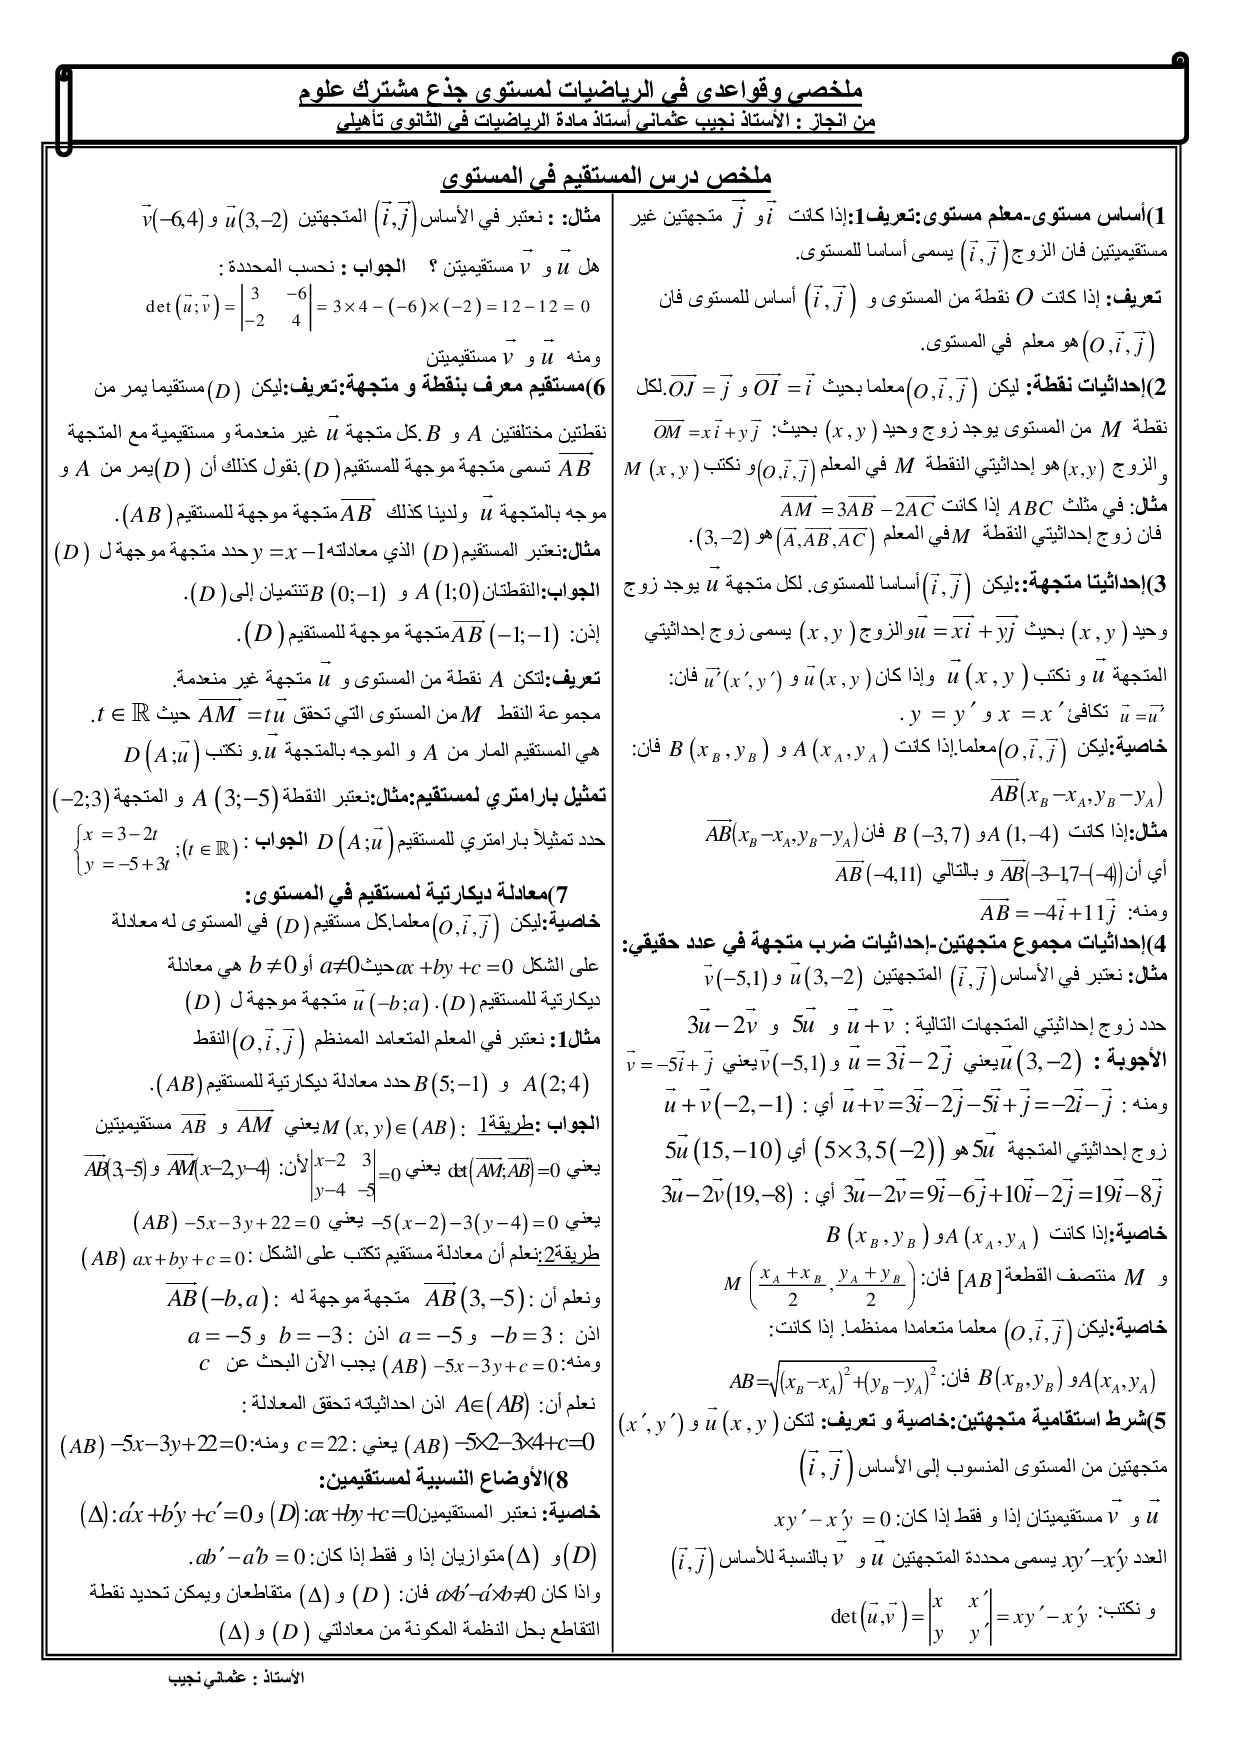 ملخصي وقواعدي في الرياضيات لمستوى جذع مشترك علوم
من انجاز : الأستاذ نجيب عثماني أستاذ مادة الرياضيات في الثانوي تأهيلي
ملخص درس المستقيم في المستوى
1)أساس مستوى-معلم مستوى:تعريف1:إذا كانت i⃗ و j⃗ متجهتين غير
مستقيميتين فان الزوج (i⃗,j⃗) يسمى أساسا للمستوى.
تعريف: إذا كانت O نقطة من المستوى و (i⃗,j⃗) أساس للمستوى فان
(O,i⃗,j⃗) هو معلم في المستوى.
2)إحداثيات نقطة: ليكن (O,i⃗,j⃗) معلما بحيث OI⃗ = i⃗ و OJ⃗ = j⃗.لكل
نقطة M من المستوى يوجد زوج وحيد (x,y) بحيث: OM⃗ = xi⃗ + yj⃗
و الزوج (x,y) هو إحداثيتي النقطة M في المعلم (O,i⃗,j⃗) و نكتب M(x,y)
مثال: في مثلث ABC إذا كانت AM⃗ = 3AB⃗ − 2AC⃗
فان زوج إحداثيتي النقطة M في المعلم (A,AB⃗,AC⃗) هو (3,−2).
3)إحداثيتا متجهة::ليكن (i⃗,j⃗) أساسا للمستوى. لكل متجهة u⃗ يوجد زوج
وحيد (x,y) بحيث u⃗ = xi⃗ + yj⃗ والزوج (x,y) يسمى زوج إحداثيتي
المتجهة u⃗ و نكتب u⃗(x,y) وإذا كان u⃗(x,y) و u⃗'(x′,y′) فان:
u⃗ = u⃗' تكافئ x = x′ و y = y′.
خاصية:ليكن (O,i⃗,j⃗) معلما.إذا كانت A(x_A,y_A) و B(x_B,y_B) فان:
AB⃗(x_B−x_A,y_B−y_A)
مثال:إذا كانت A(1,−4) و B(−3,7) فان AB⃗(x_B−x_A,y_B−y_A)
أي أن AB⃗(−3−1,7−(−4)) و بالتالي AB⃗(−4,11)
ومنه: AB⃗ = −4i⃗+11j⃗
4)إحداثيات مجموع متجهتين-إحداثيات ضرب متجهة في عدد حقيقي:
مثال: نعتبر في الأساس (i⃗,j⃗) المتجهتين u⃗(3,−2) و v⃗(−5,1)
حدد زوج إحداثيتي المتجهات التالية : u⃗+v⃗ و 5u⃗ و 3u⃗−2v⃗
الأجوبة : u⃗(3,−2) يعني u⃗ = 3i⃗−2j⃗ و v⃗(−5,1) يعني v⃗ = −5i⃗+j⃗
ومنه : u⃗+v⃗=3i⃗−2j⃗−5i⃗+j⃗=−2i⃗−j⃗ أي : u⃗+v⃗(−2,−1)
زوج إحداثيتي المتجهة 5u⃗ هو (5×3,5(−2)) أي 5u⃗(15,−10)
3u⃗−2v⃗=9i⃗−6j⃗+10i⃗−2j⃗=19i⃗−8j⃗ أي : 3u⃗−2v⃗(19,−8)
خاصية:إذا كانت A(x_A,y_A) و B(x_B,y_B)
و M منتصف القطعة [AB] فان: M((x_A+x_B)/2 , (y_A+y_B)/2)
خاصية:ليكن (O,i⃗,j⃗) معلما متعامدا ممنظما. إذا كانت:
A(x_A,y_A) و B(x_B,y_B) فان: AB=√((x_B−x_A)²+(y_B−y_A)²)
5)شرط استقامية متجهتين:خاصية و تعريف: لتكن u⃗(x,y) و (x′,y′)
متجهتين من المستوى المنسوب إلى الأساس (i⃗,j⃗)
u⃗ و v⃗ مستقيميتان إذا و فقط إذا كان: xy′−x′y = 0
العدد xy′−x′y يسمى محددة المتجهتين u⃗ و v⃗ بالنسبة للأساس (i⃗,j⃗)
و نكتب: det(u⃗,v⃗) = |x x′ ; y y′| = xy′−x′y
مثال: : نعتبر في الأساس (i⃗,j⃗) المتجهتين u⃗(3,−2) و v⃗(−6,4)
هل u⃗ و v⃗ مستقيميتن ؟ الجواب : نحسب المحددة :
det(u⃗;v⃗) = |3 −6 ; −2 4| = 3×4−(−6)×(−2) = 12−12 = 0
ومنه u⃗ و v⃗ مستقيميتن
6)مستقيم معرف بنقطة و متجهة:تعريف:ليكن (D) مستقيما يمر من
نقطتين مختلفتين A و B.كل متجهة u⃗ غير منعدمة و مستقيمية مع المتجهة
AB⃗ تسمى متجهة موجهة للمستقيم (D).نقول كذلك أن (D) يمر من A و
موجه بالمتجهة u⃗ ولدينا كذلك AB⃗ متجهة موجهة للمستقيم (AB).
مثال:نعتبر المستقيم (D) الذي معادلته y = x −1 حدد متجهة موجهة ل (D)
الجواب:النقطتان A(1;0) و B(0;−1) تنتميان إلى (D).
إذن: AB⃗(−1;−1) متجهة موجهة للمستقيم (D).
تعريف:لتكن A نقطة من المستوى و u⃗ متجهة غير منعدمة.
مجموعة النقط M من المستوى التي تحقق AM⃗ = tu⃗ حيث t ∈ ℝ.
هي المستقيم المار من A و الموجه بالمتجهة u⃗.و نكتب D(A;u⃗)
تمثيل بارامتري لمستقيم:مثال:نعتبر النقطة A(3;−5) و المتجهة (−2;3)
حدد تمثيلاً بارامتري للمستقيم D(A;u⃗) الجواب : {x = 3−2t ; y = −5+3t ;(t ∈ ℝ)
7)معادلة ديكارتية لمستقيم في المستوى:
خاصية:ليكن (O,i⃗,j⃗) معلما.كل مستقيم (D) في المستوى له معادلة
على الشكل ax+by+c=0 حيث a≠0 أو b≠0 هي معادلة
ديكارتية للمستقيم (D). u⃗(−b;a) متجهة موجهة ل (D)
مثال1: نعتبر في المعلم المتعامد الممنظم (O,i⃗,j⃗) النقط
A(2;4) و B(5;−1) حدد معادلة ديكارتية للمستقيم (AB).
الجواب :طريقة1 : M(x,y)∈(AB) يعني AM⃗ و AB⃗ مستقيميتين
يعني det(AM⃗;AB⃗)=0 يعني |x−2 3 ; y−4 −5|=0 لأن: AM⃗(x−2,y−4) و AB⃗(3,−5)
يعني −5(x−2)−3(y−4)=0 يعني −5x−3y+22=0 (AB)
طريقة2:نعلم أن معادلة مستقيم تكتب على الشكل : ax+by+c=0 (AB)
ونعلم أن : AB⃗(3,−5) متجهة موجهة له : AB⃗(−b,a)
اذن : −b = 3 و a = −5 اذن : b = −3 و a = −5
ومنه: −5x−3y+c=0 (AB) يجب الآن البحث عن c
نعلم أن: A∈(AB) اذن احداثياته تحقق المعادلة :
−5×2−3×4+c=0 (AB) يعني : c = 22 ومنه: −5x−3y+22=0 (AB)
8)الأوضاع النسبية لمستقيمين:
خاصية: نعتبر المستقيمين (D):ax+by+c=0 و (Δ):a′x+b′y+c′=0
(D) و (Δ) متوازيان إذا و فقط إذا كان: ab′−a′b = 0.
واذا كان a×b′−a′×b≠0 فان: (D) و (Δ) متقاطعان ويمكن تحديد نقطة
التقاطع بحل النظمة المكونة من معادلتي (D) و (Δ)
الأستاذ : عثماني نجيب